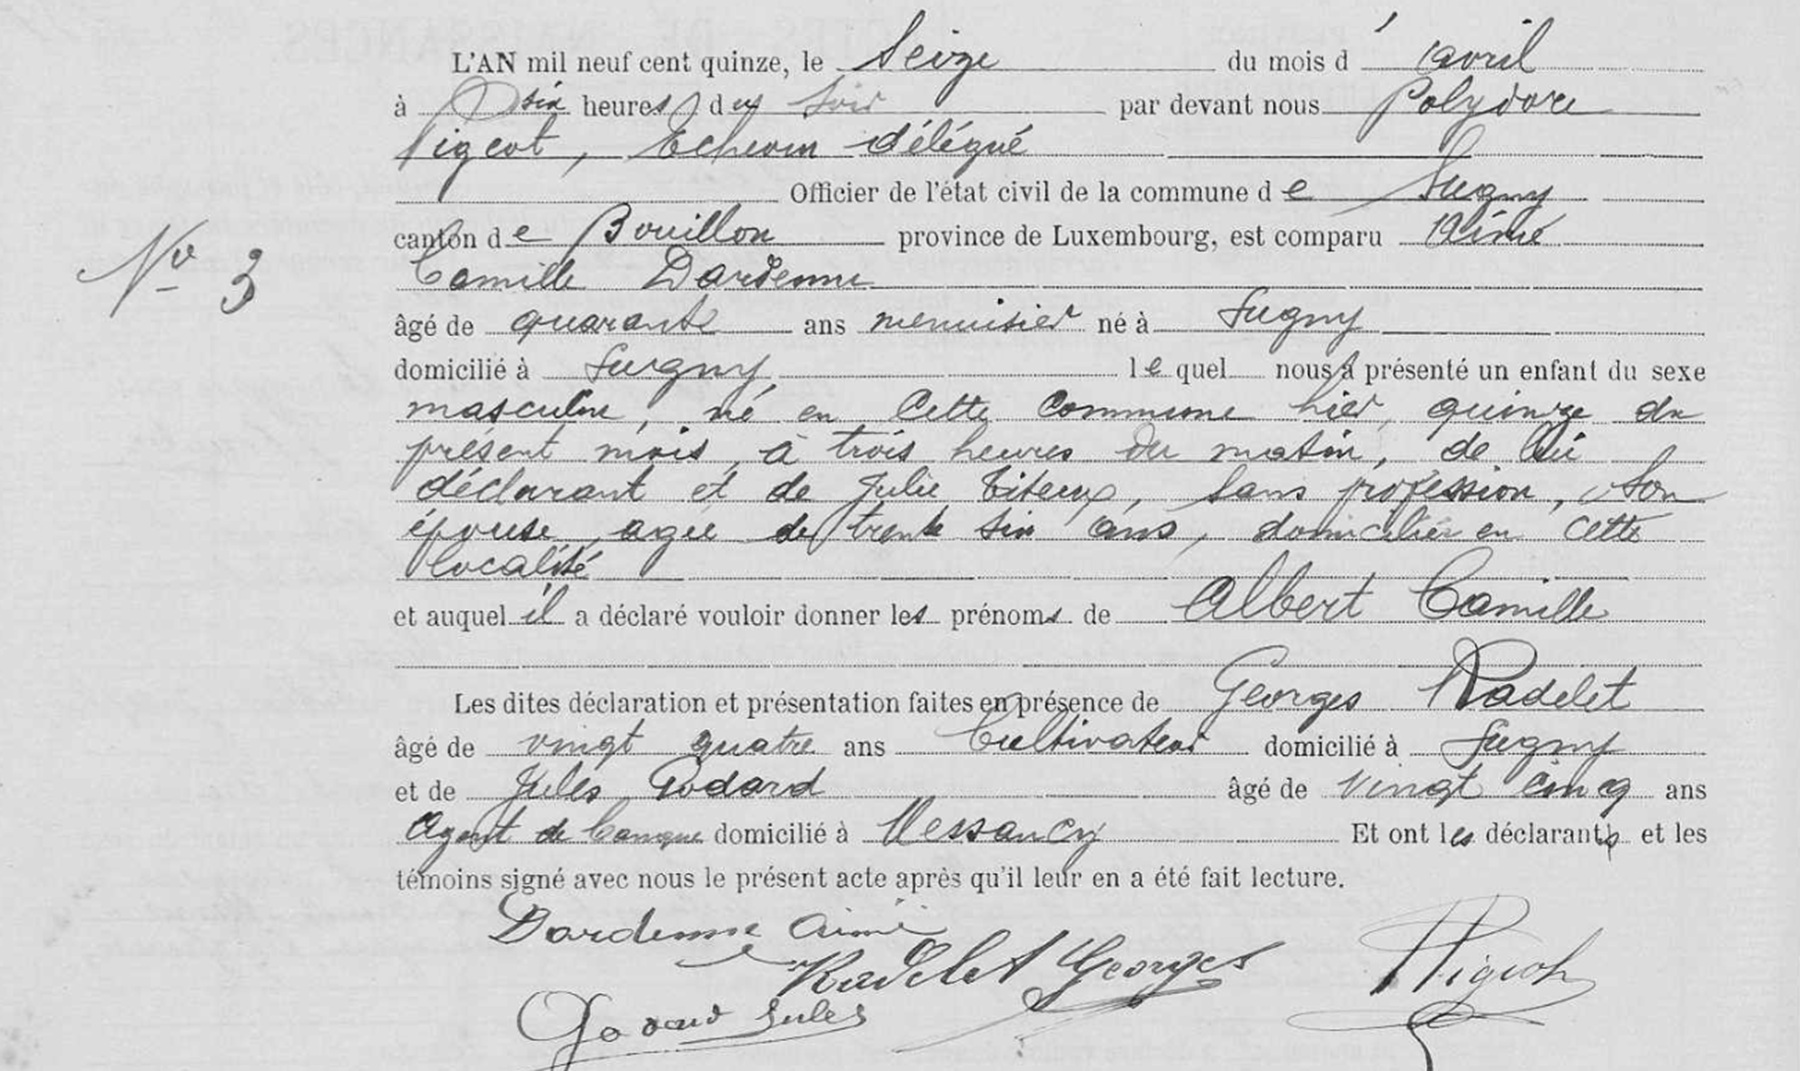 L'AN mil neuf cent quinze, le Seize du mois d' avril
à six heures du soir par devant nous Polydore
Pigeot, Echevin délégué
Officier de l'état civil de la commune de Sugny
canton de Bouillon province de Luxembourg, est comparu Aimé
Nº 3
Camille Dardenne
âgé de quarante ans menuisier né à Sugny
domicilié à Sugny lequel nous a présenté un enfant du sexe
masculin, né en cette commune hier, quinze du
présent mois, à trois heures du matin, de lui
déclarant et de Julie Titeux, sans profession, son
épouse, agée de trente six ans, domiciliée en cette
localité
et auquel il a déclaré vouloir donner les prénoms de Albert Camille
Les dites déclaration et présentation faites en présence de Georges Radelet
âgé de vingt quatre ans Cultivateur domicilié à Sugny
et de Jules Godard âgé de vingt cinq ans
Agent de banque domicilié à Messancy Et ont les déclarants et les
témoins signé avec nous le présent acte après qu'il leur en a été fait lecture.
Dardenne Aimé
Radelet Georges PPigeot
Godard Jules